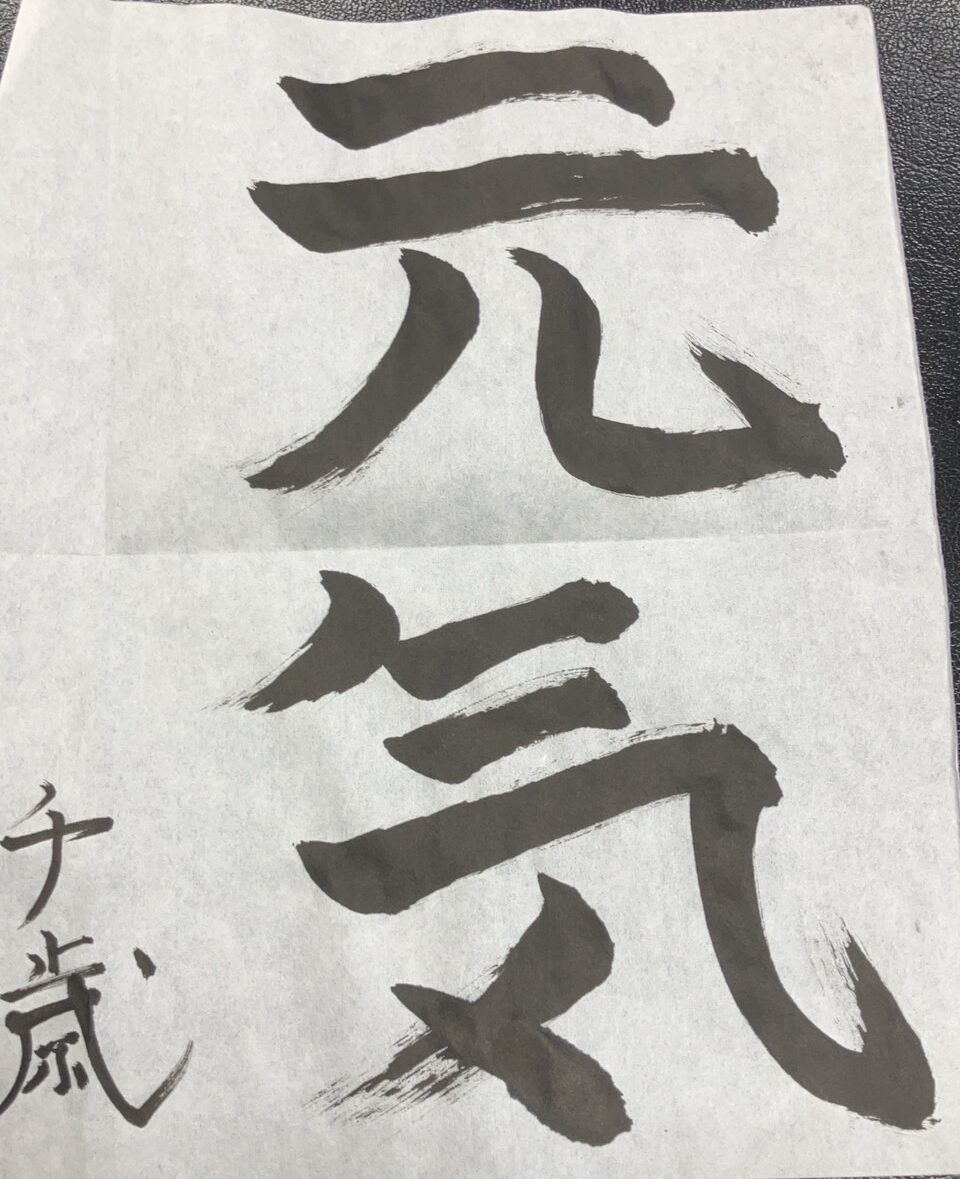 元気
千歳